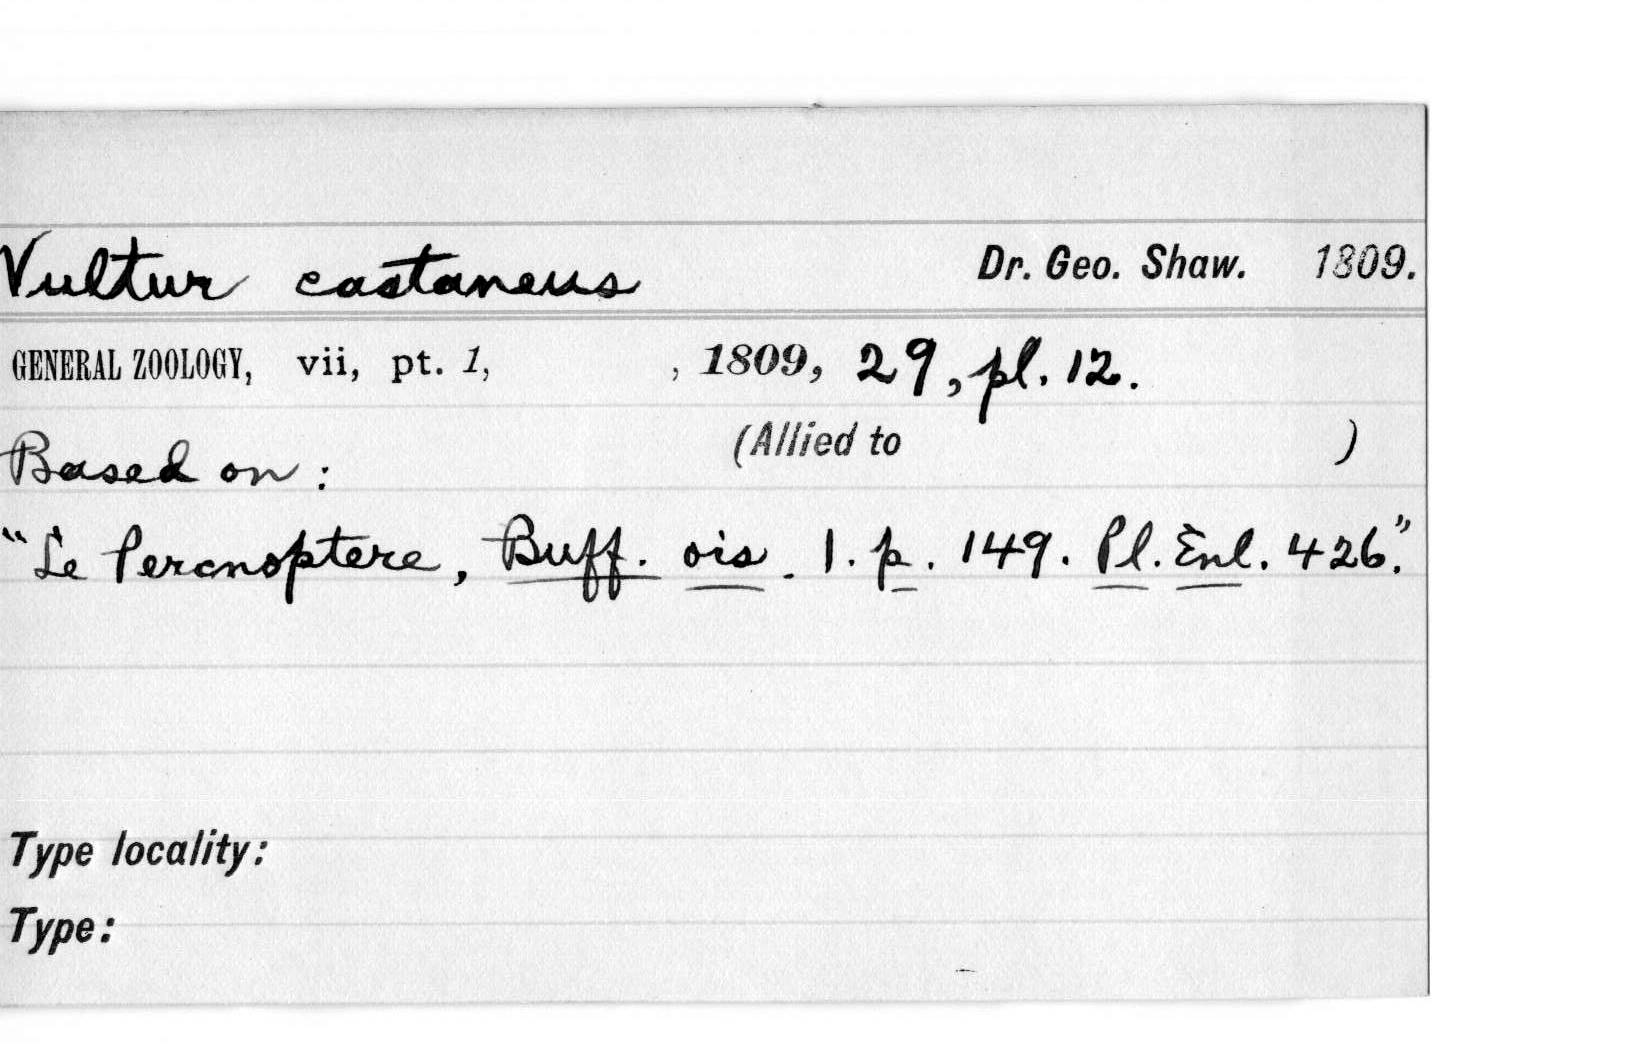 Vultur castaneus Dr. Geo. Shaw. 1809.
GENERAL ZOOLOGY, vii, pt. 1, , 1809, 29, pl. 12.
(Allied to )
Based on :
"Le Percnoptere, Buff. ois. 1. p. 149. Pl. Enl. 426."
Type locality:
Type: